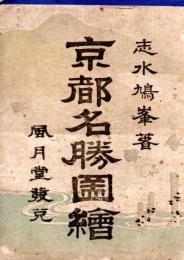 志水鳩峯著
京都名勝圖繪
風月堂發兌